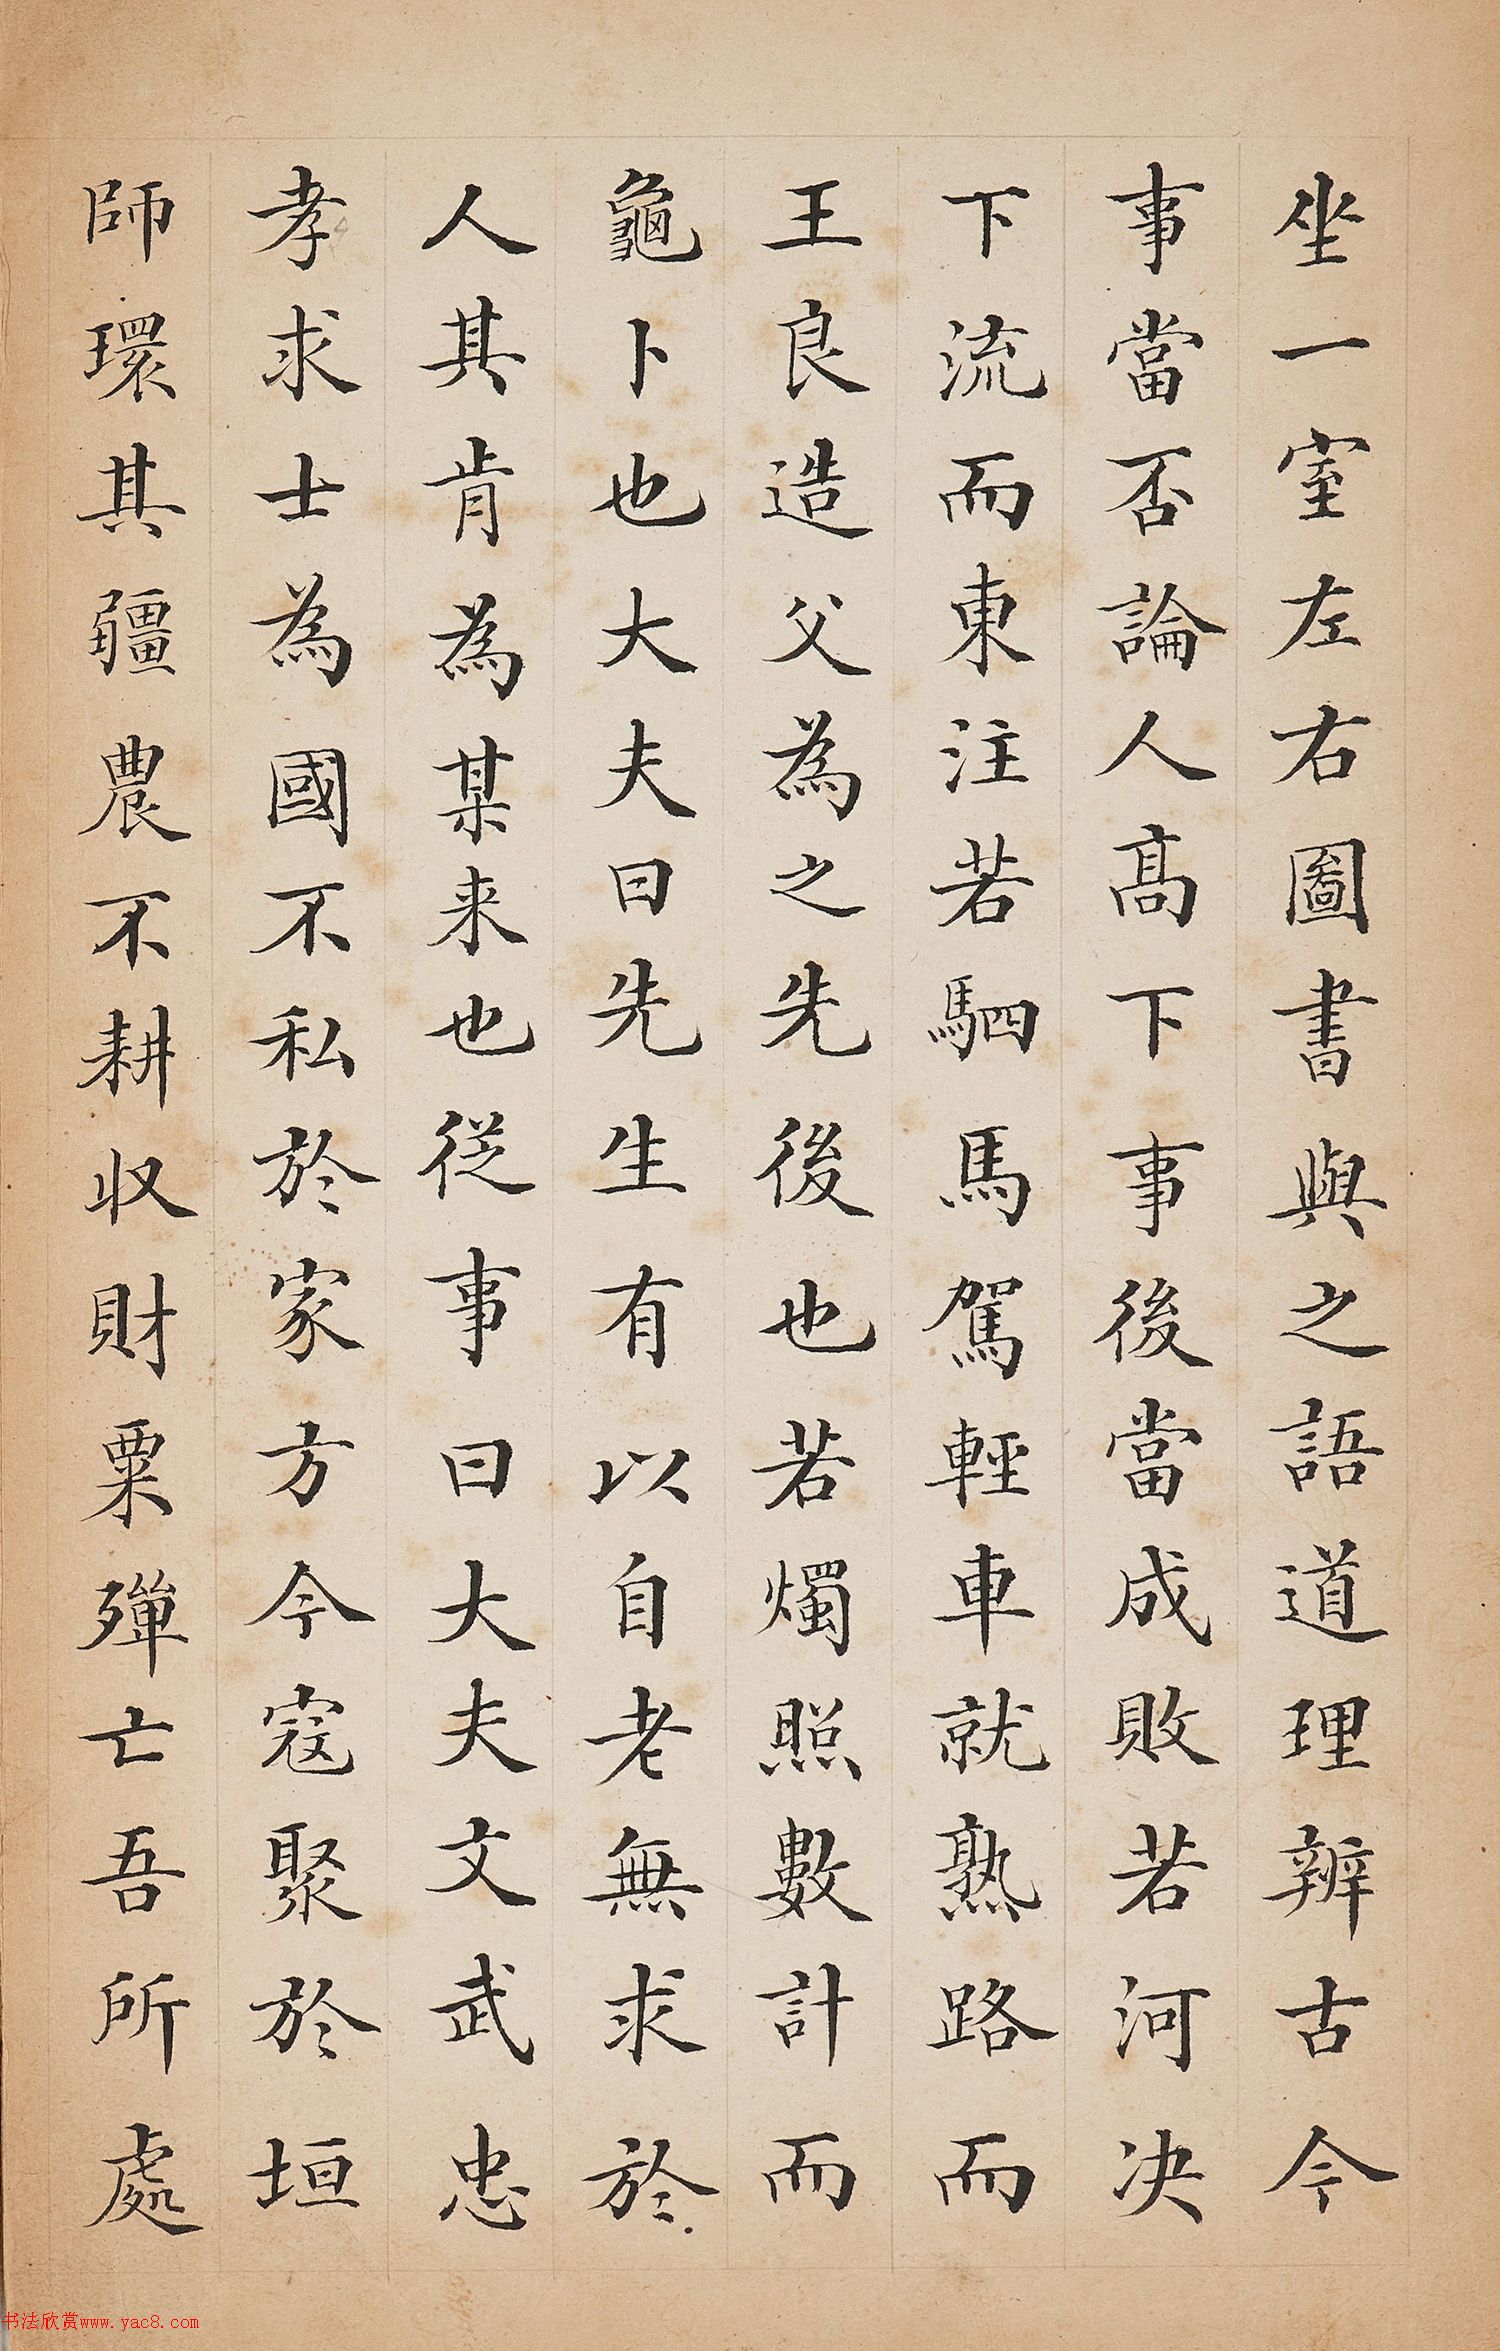 坐一室左右圖書與之語道理辨古今
事當否論人髙下事後當成敗若河决
下流而東注若駟馬駕輕車就熟路而
王良造父為之先後也若燭照數計而
龜卜也大夫曰先生有以自老無求於
人其肯為某来也從事曰大夫文武忠
孝求士為國不私於家方今寇聚於垣
師環其疆農不耕收財粟殫亡吾所處
书法欣赏www.yac8.com